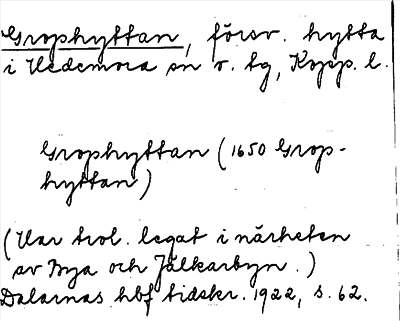 Grophyttan, försv. hytta
i Hedemora sn o. tg, Kopp. l.
Grophyttan (1650 Grop-
hyttan)
(Har trol. legat i närheten
av Nya och Jälkarbyn.)
Dalarnas hbf tidskr. 1922, s. 62.